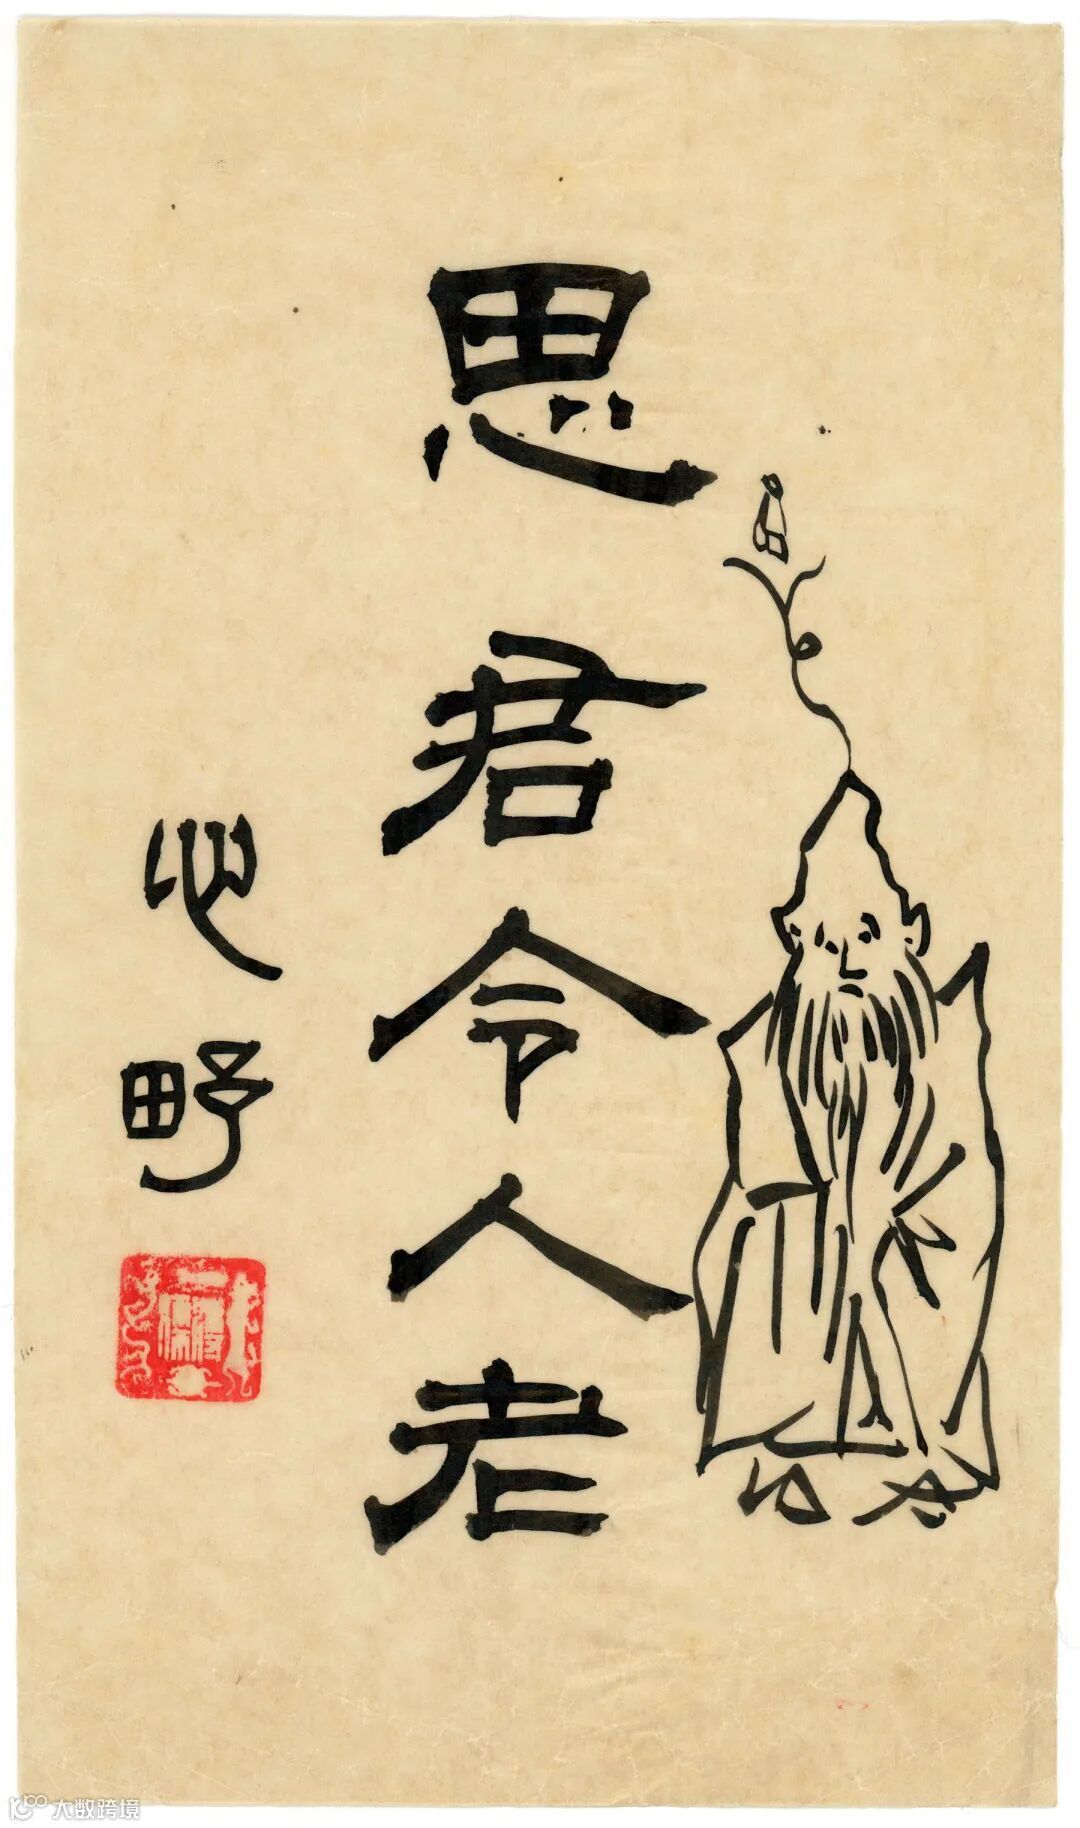 思君令人老
心野
大数跨境